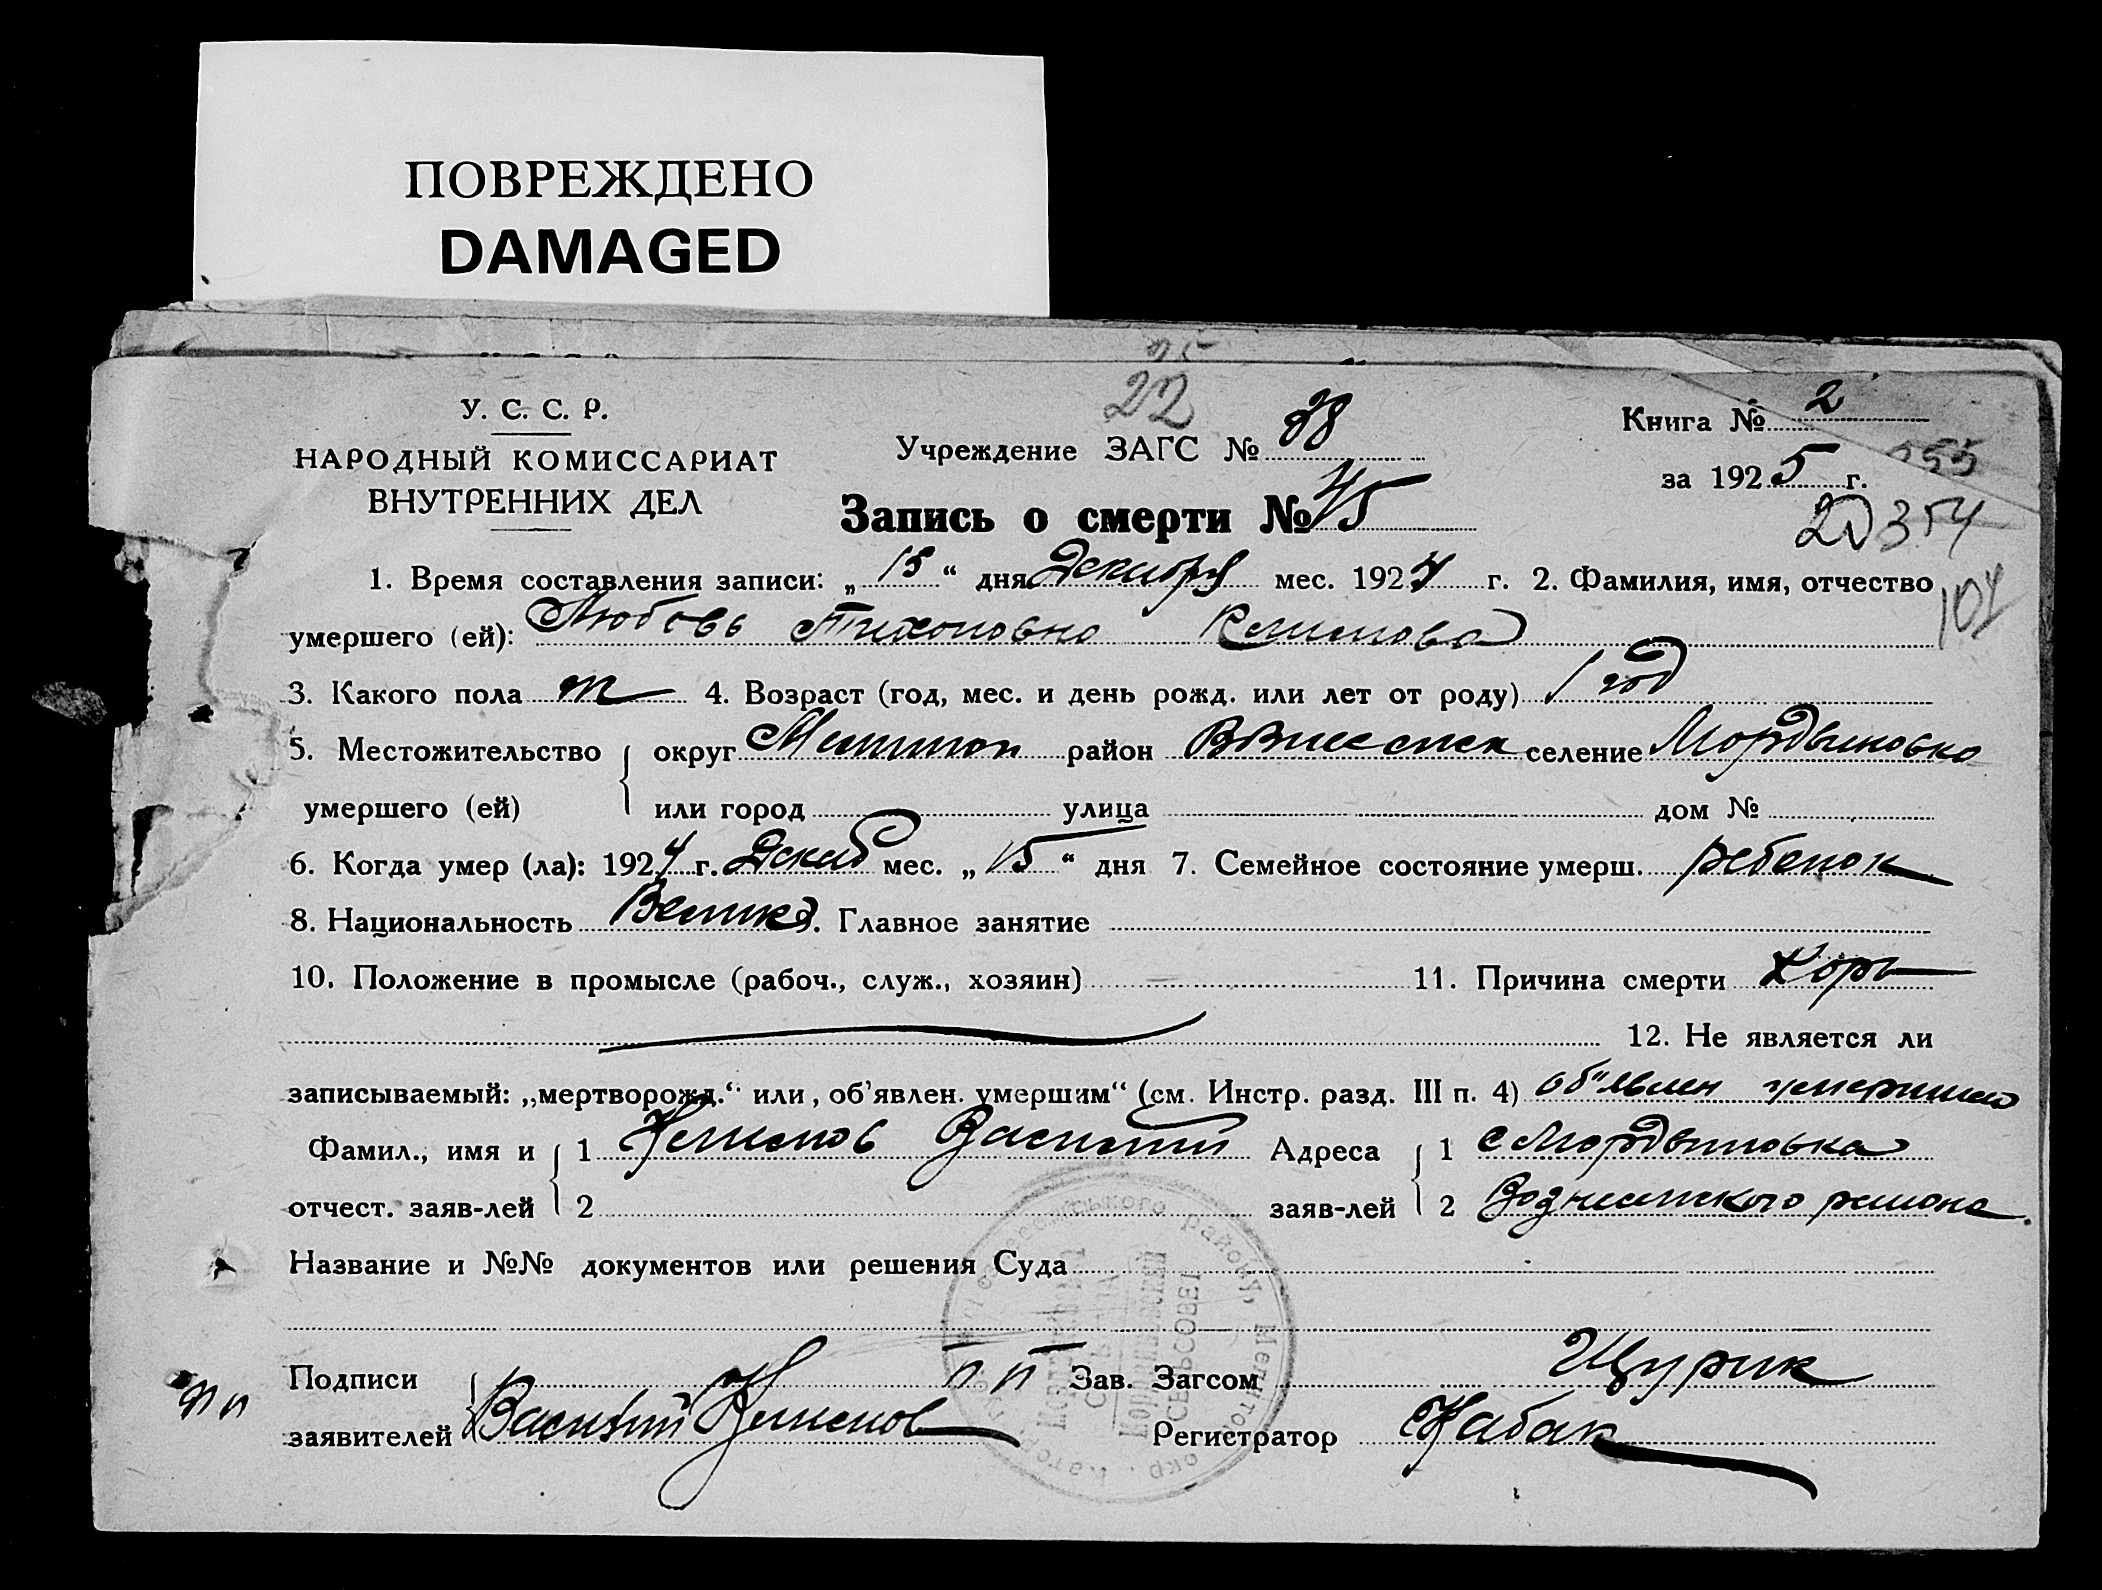 ПОВРЕЖДЕНО
DAMAGED
22
У. С. С. Р.
НАРОДНЫЙ КОМИССАРИАТ
ВНУТРЕННИХ ДЕЛ
Учреждение ЗАГС № 38
Книга № 2
за 1925 г.
Запись о смерти № 45
354
104
1. Время составления записи: „15“ дня Декабря мес. 1924 г. 2. Фамилия, имя, отчество
умершего (ей): Любовь Тихоновна
3. Какого пола ж 4. Возраст (год, мес. и день рожд. или лет от роду) 1 год
5. Местожительство округ Мелитоп район селение Мордвиновка
умершего (ей) или город улица дом №
6. Когда умер (ла): 1924 г. Декаб мес. „15“ дня 7. Семейное состояние умерш. ребенок
8. Национальность Велик 9. Главное занятие
10. Положение в промысле (рабоч., служ., хозяин) 11. Причина смерти Корь
12. Не является ли
записываемый: „мертворожд.“ или, об’явлен. умершим“ (см. Инстр. разд. III п. 4) об"явлен умершим
Фамил., имя и 1 Василий Адреса 1 с Мордвиновка
отчест. заяв-лей 2 заяв-лей 2 Вознесенского района.
Название и №№ документов или решения Суда
Подписи п п Зав. Загсом Щурик
заявителей Василий Регистратор Кабак